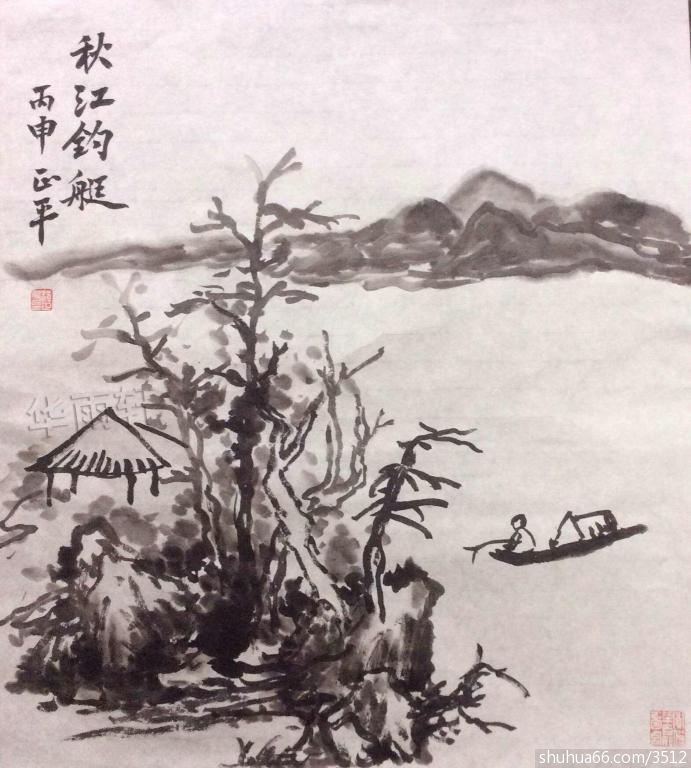 秋江钓艇
丙申 正平
华雨轩
shuhua66.com/3512